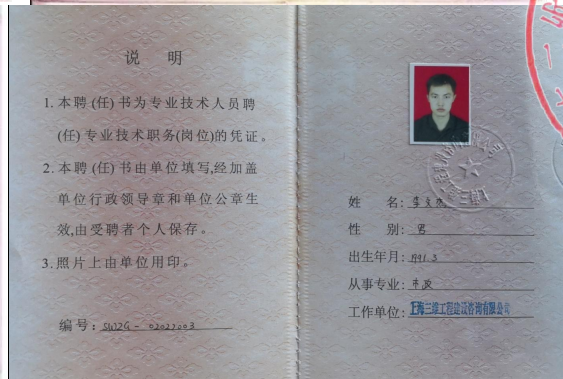 说 明
1.本聘(任)书为专业技术人员聘
(任)专业技术职务(岗位)的凭证。
2.本聘(任)书由单位填写,经加盖
单位行政领导章和单位公章生
效,由受聘者个人保存。
3.照片上由单位用印。
编号:SWZG-02023003
姓 名:李文
性 别:男
出生年月:1991.3
从事专业:市政
工作单位:上海三维工程建设咨询有限公司